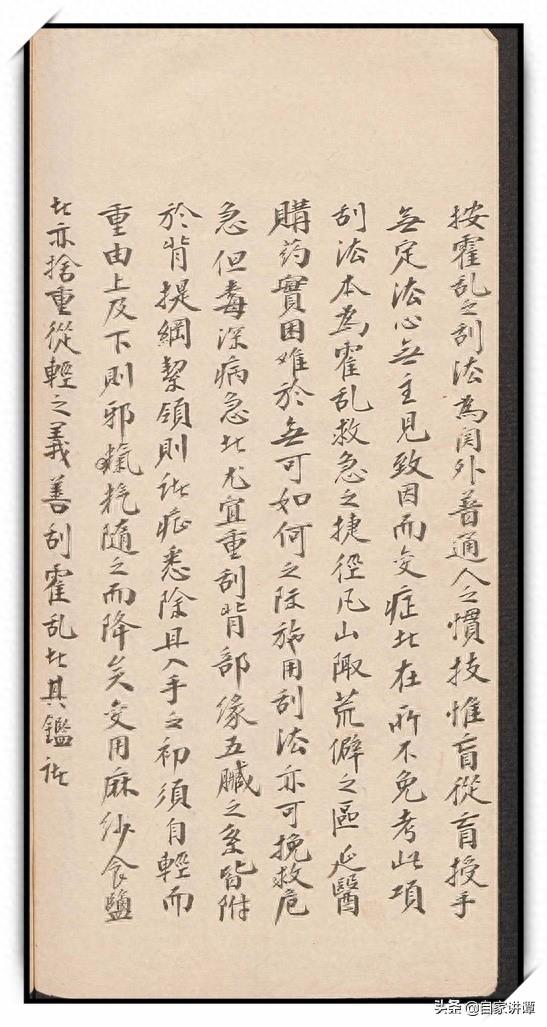 按霍乱之刮法為関外普通人之慣技惟盲從盲授手
無定法心無主見致因而变症者在所不免考此項
刮法本為霍乱救急之捷徑凡山陬荒僻之區延醫
購药實困难於無可如何之际施用刮法亦可挽救危
急但毒深病急者尤宜重刮背部缘五臟之系皆附
於背提綱挈領則諸症悉除且入手之初須自輕而
重由上及下則邪氣随之而降矣变用麻纱食鹽
者亦捨重從輕之義善刮霍乱者其鑑諸
头条 @自家讲谭